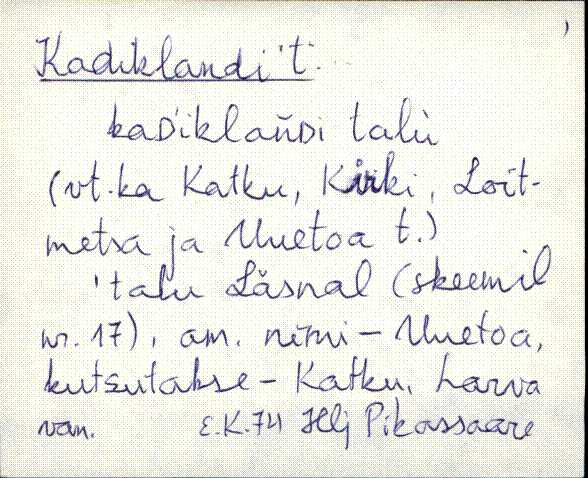 Kadiklandi t.
kaDiklaǹDi talù
(vt. ka Katku, Kirki, Loit-
metsa ja Uuetoa t.)
'talu Läsnal (skeemil
nr. 17), am. nimi – Uuetoa,
kutsutakse – Katku. Harva
van. E.K. 74 Hlj Pikassaare